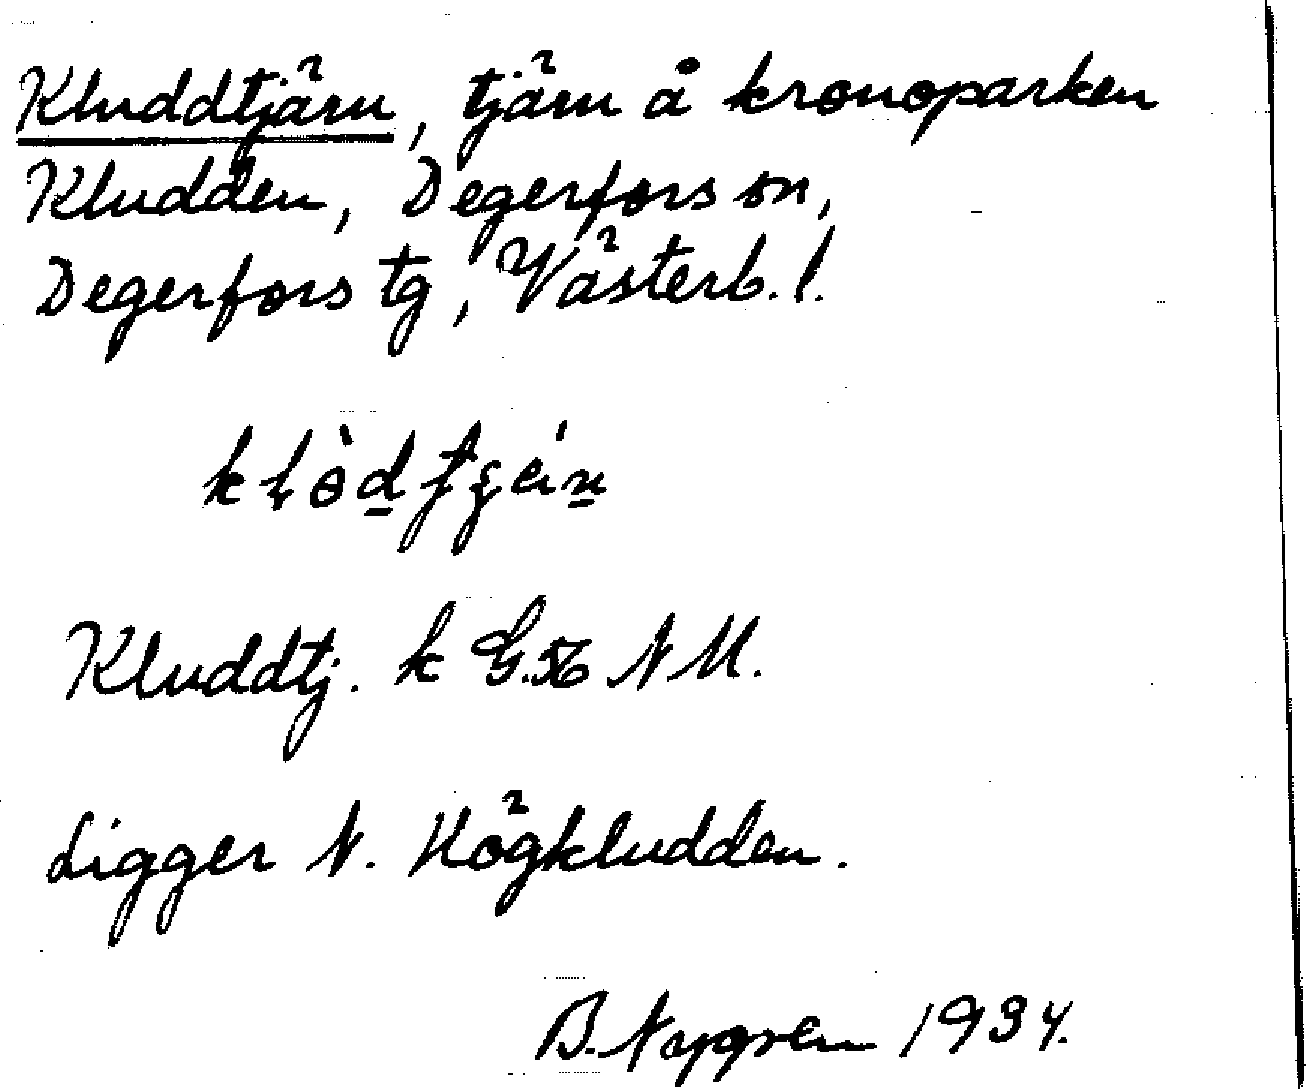 Kluddtjärn, tjärn å kronoparken
Kludden, Degerfors sn,
Degerfors tg, Västerb. l.
Kluddtj. k G.56 NM.
Ligger N. Högkludden.
B. Nygren 1934.